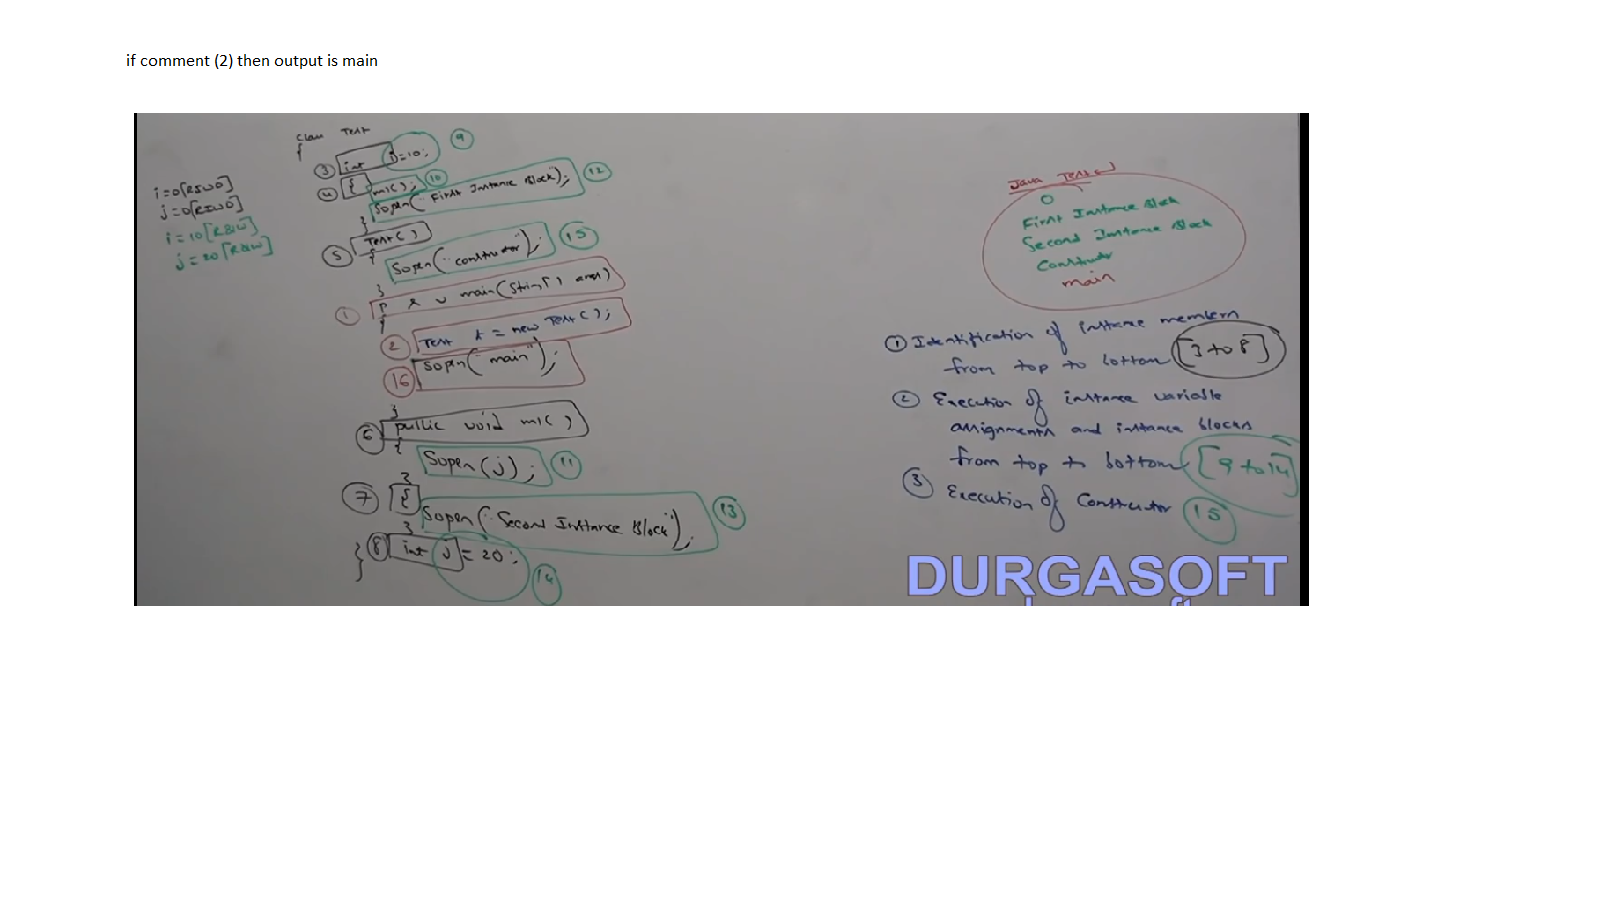 if comment (2) then output is main
class Test
{
③ int i=10; ⑨
④ { m1(); ⑩
Sopln("First Instance Block"); ⑫
}
⑤ Test()
{
Sopln("constructor"); ⑮
}
① p s v main(String[] args)
{
② Test t = new Test();
⑯ Sopln("main");
}
⑥ public void m1()
{
Sopln(j); ⑪
}
⑦ {
Sopln("Second Instance Block"); ⑬
}
⑧ int j = 20; ⑭
}
i=0[RIWO]
j=0[RIWO]
i=10[R&W]
j=20[R&W]
Java Test
0
First Instance Block
Second Instance Block
Constructor
main
① Identification of instance members
from top to bottom [3 to 8]
② Execution of instance variable
assignments and instance blocks
from top to bottom [9 to 14]
③ Execution of Constructor ⑮
DURGASOFT